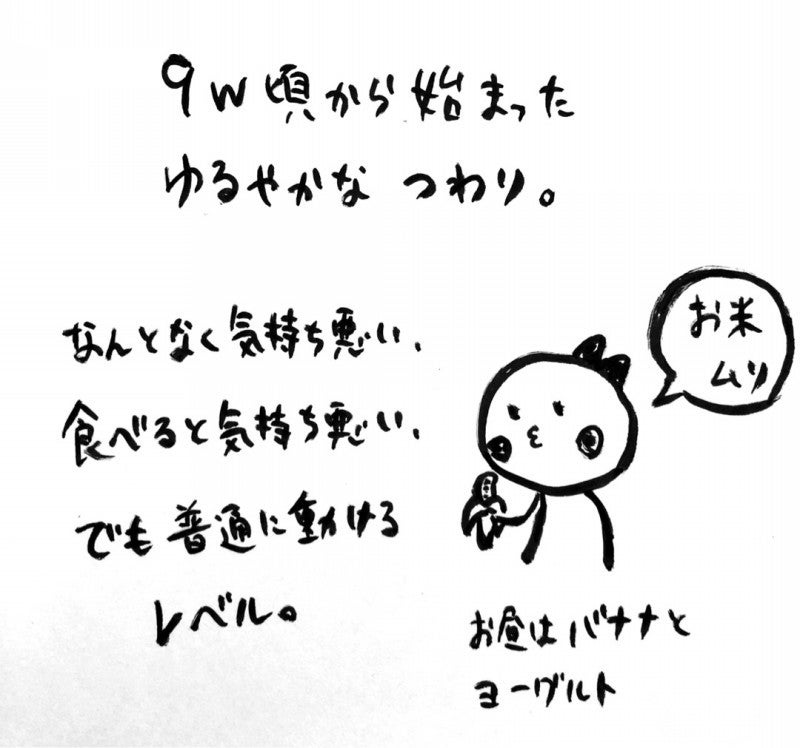 9w頃から始まった
ゆるやかな つわり。
なんとなく気持ち悪い、
食べると気持ち悪い、
でも普通に動ける
レベル。
お米
ムリ
お昼はバナナと
ヨーグルト